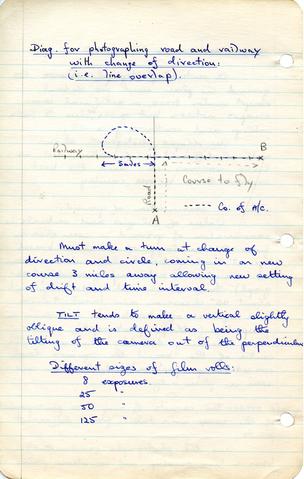 Diag. for photographing road and railway
with change of direction:
(i.e. line overlap).
Railway
B
5 miles
Course to fly
Road
Co. of A/C.
A
Must make a turn at change of
direction and circle, coming in on new
course 3 miles away allowing new setting
of drift and time interval.
TILT tends to make a vertical slightly
oblique and is defined as being the
tilting of the camera out of the perpendicular
Different sizes of film rolls:
8 exposures.
25 "
50 "
125 "